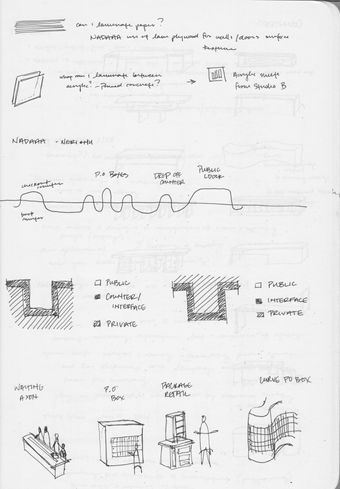 can i laminate paper?
NADAAA use of lam plywood for walls/doors surface
what can i laminate between
acrylic? - Poured concrete?
Acrylic sheets
from Studio B
NADAAA
P.O BOXES
DROP OFF
COUNTER
PUBLIC
LOCK
PUBLIC
COUNTER/
INTERFACE
PRIVATE
PUBLIC
INTERFACE
PRIVATE
WAITING
AXON
P.O
BOX
PACKAGE
RETAIL
CURVE PO BOX